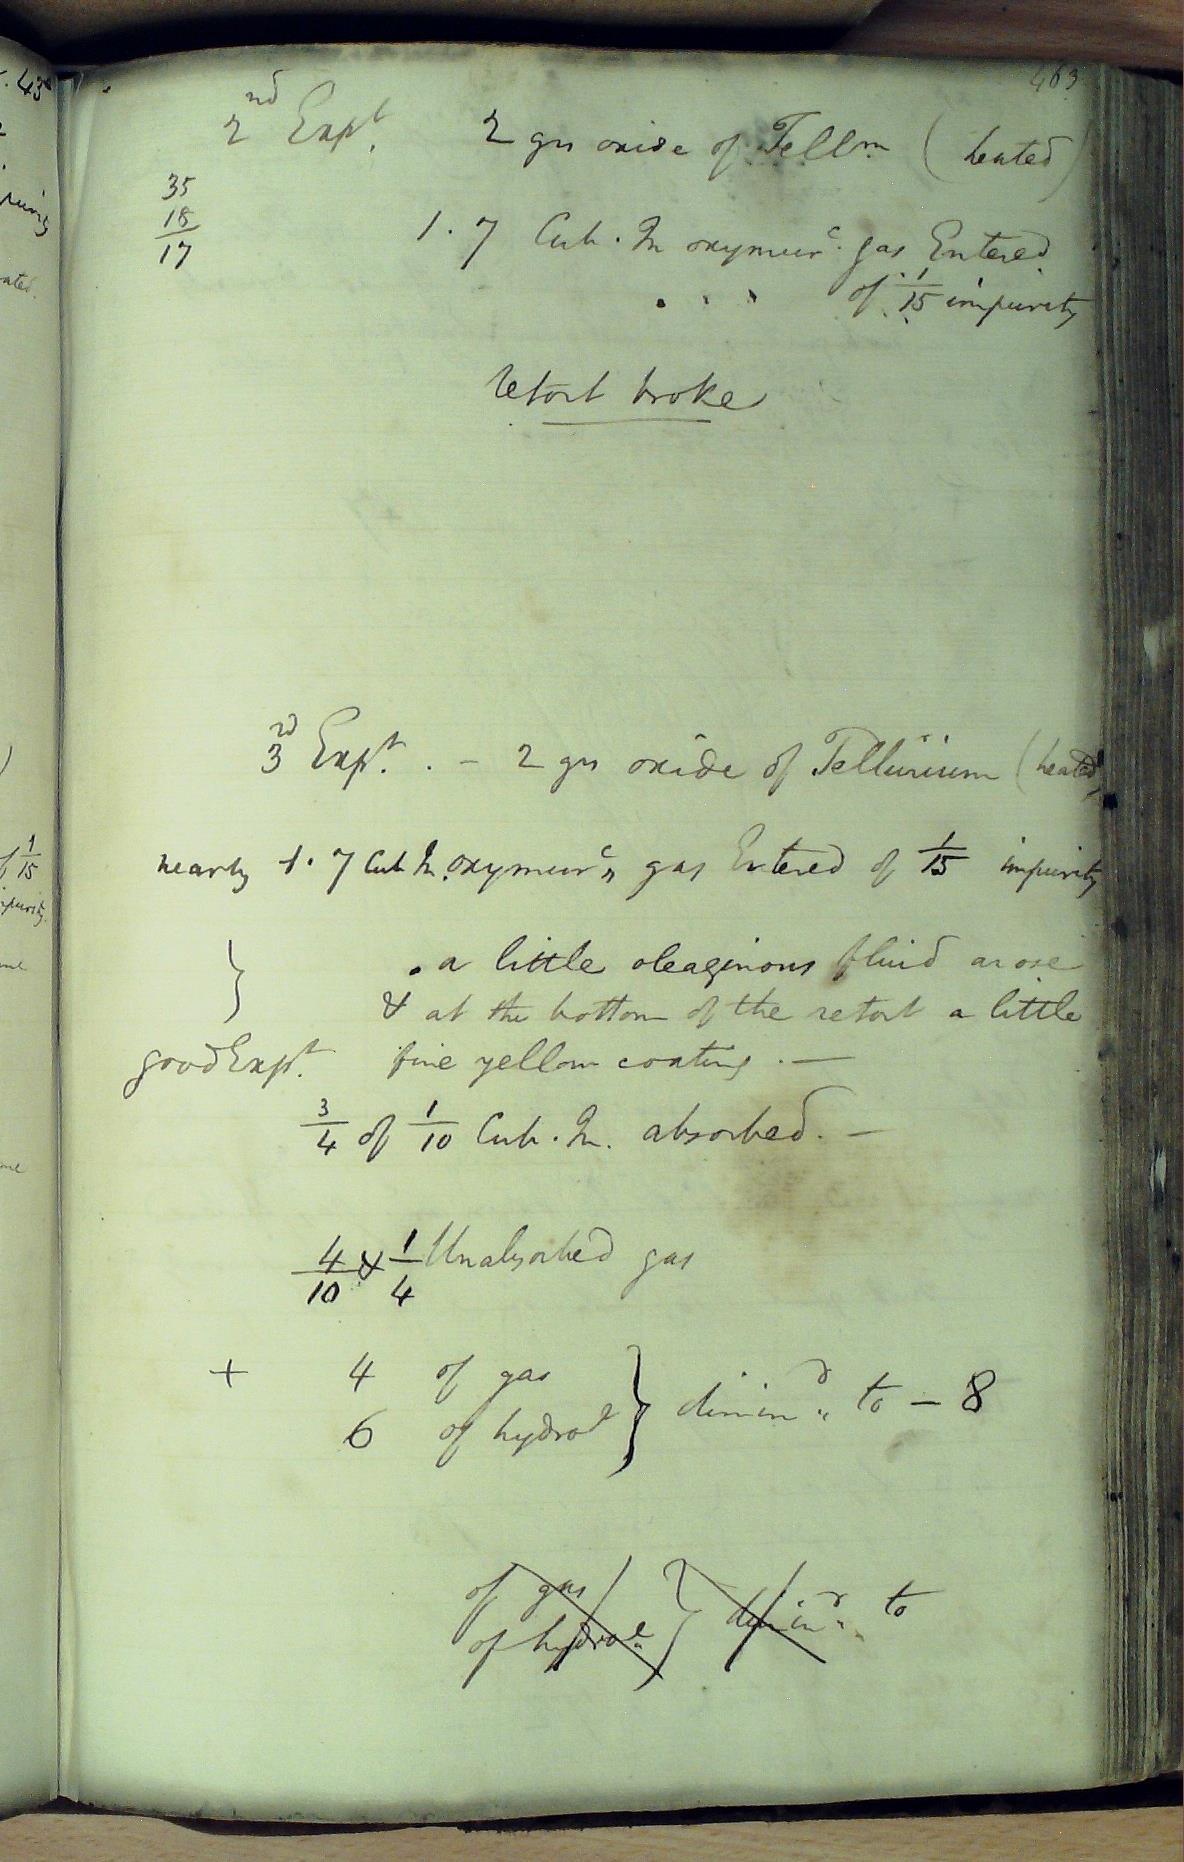 463
2nd Expt. 2 grs oxide of Tellm (heated)
35
18
17
1.7 Cub. In oxymurc. gas Entered
of 1/15 impurity
retort broke
3rd Expt. . - 2 grs oxide of Tellurium (heated)
nearly 1.7 Cub In. oxymurc„ gas Entered of 1/15 impurity
. a little oleaginous fluid arose
& at the bottom of the retort a little
good Expt. fine yellow coating . —
3/4 of 1/10 Cub. In. absorbed. —
4/10 & 1/4 Unabsorbed gas
+ 4 of gas
6 of hydrol } dimind„ to — 8
of gas
of hydrol„ } dimind„ to
43
1/15